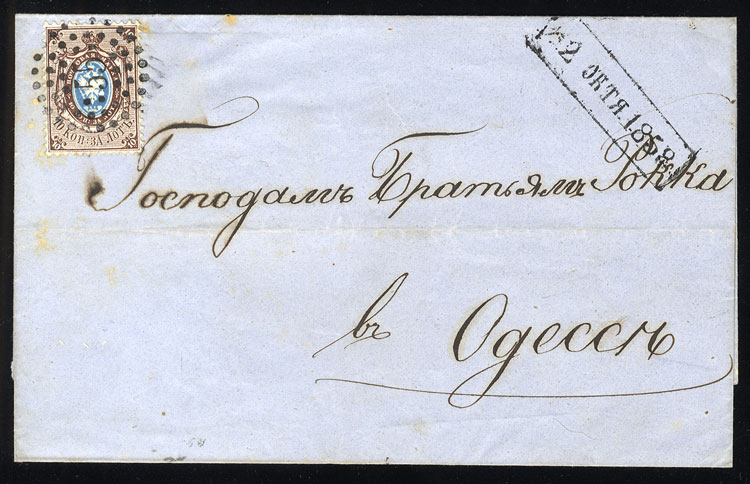 10 КОП: ЗА ЛОТЪ.
2 ОКТЯ. 1858
Господамъ Братьямъ Рокка
въ Одессѣ